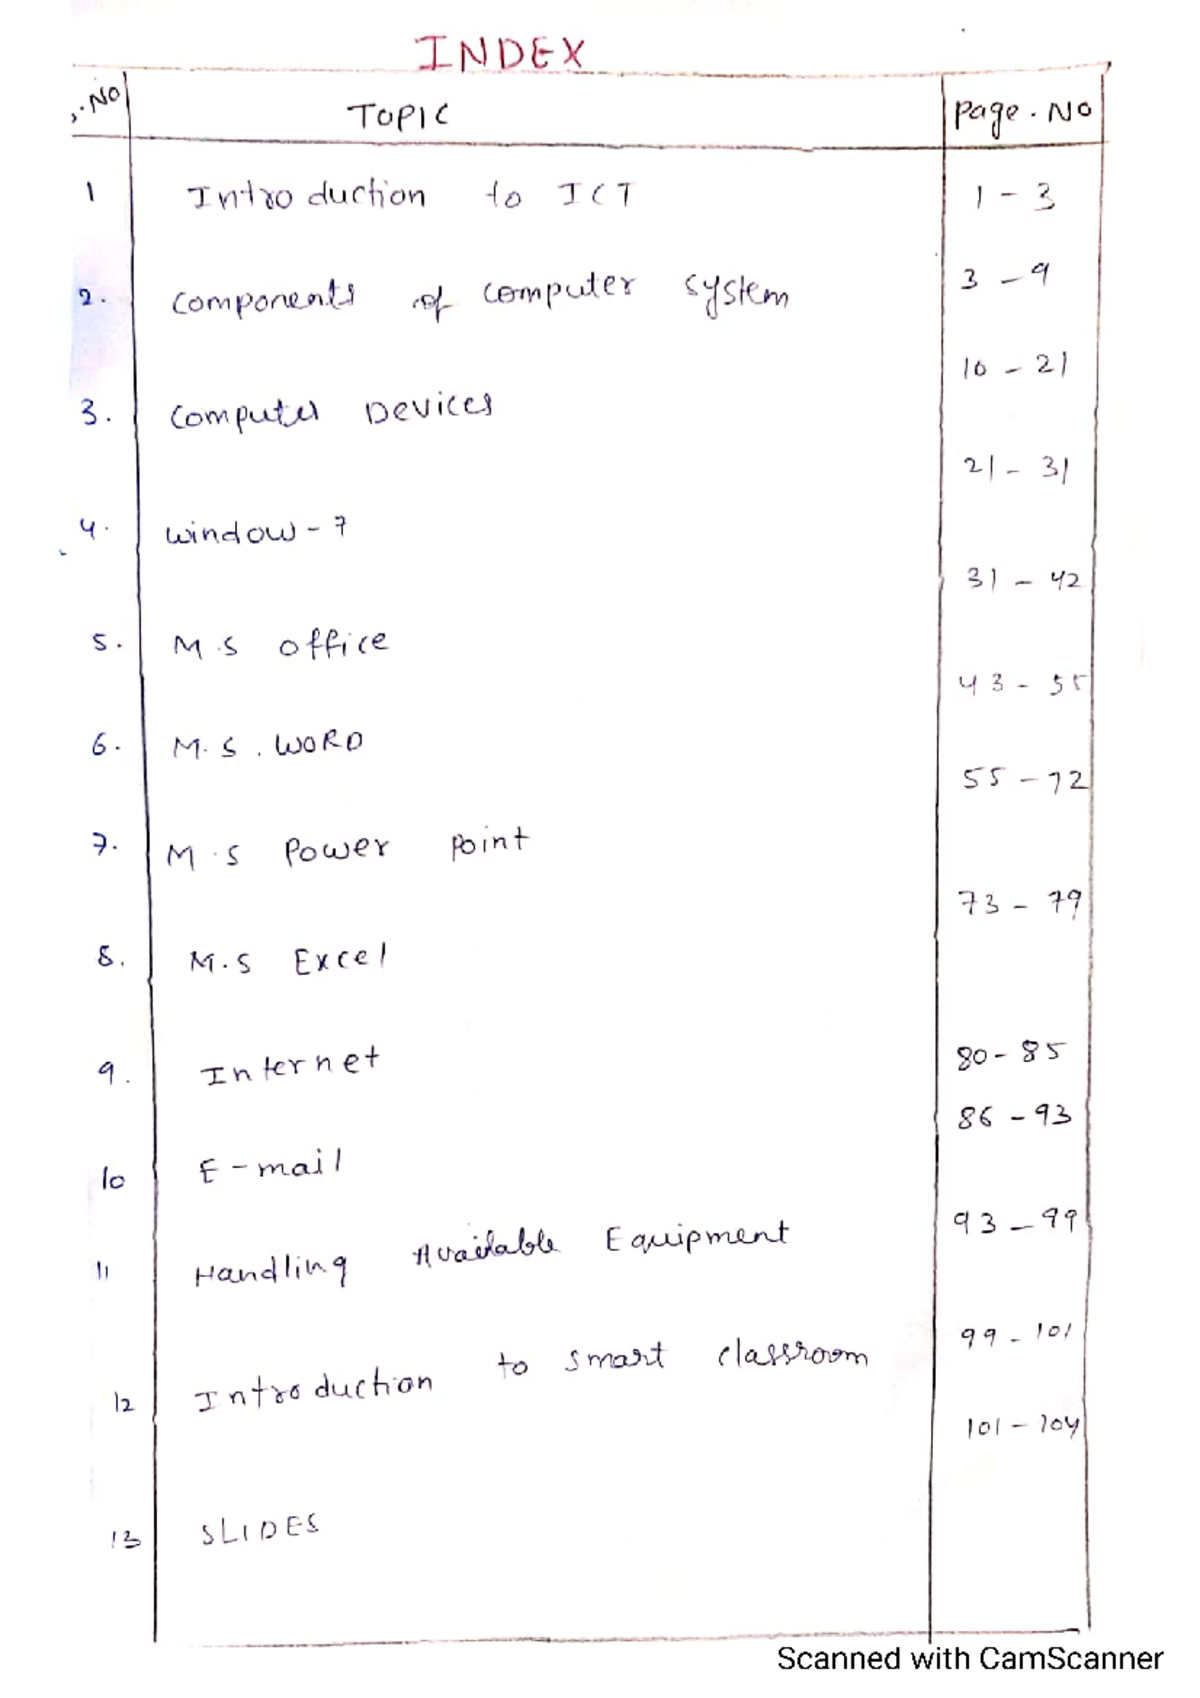 INDEX
.No TOPIC Page.No
1 Introduction to ICT 1-3
2. Components of Computer System 3-9
3. Computer Devices 10-21
4. Window-7 21-31
5. M.S office 31-42
6. M.S. WORD 43-55
7. M.S Power Point 55-72
8. M.S Excel 73-79
9. Internet 80-85
10 E-mail 86-93
11 Handling Available Equipment 93-99
12 Introduction to smart classroom 99-101
13 SLIDES 101-104
Scanned with CamScanner